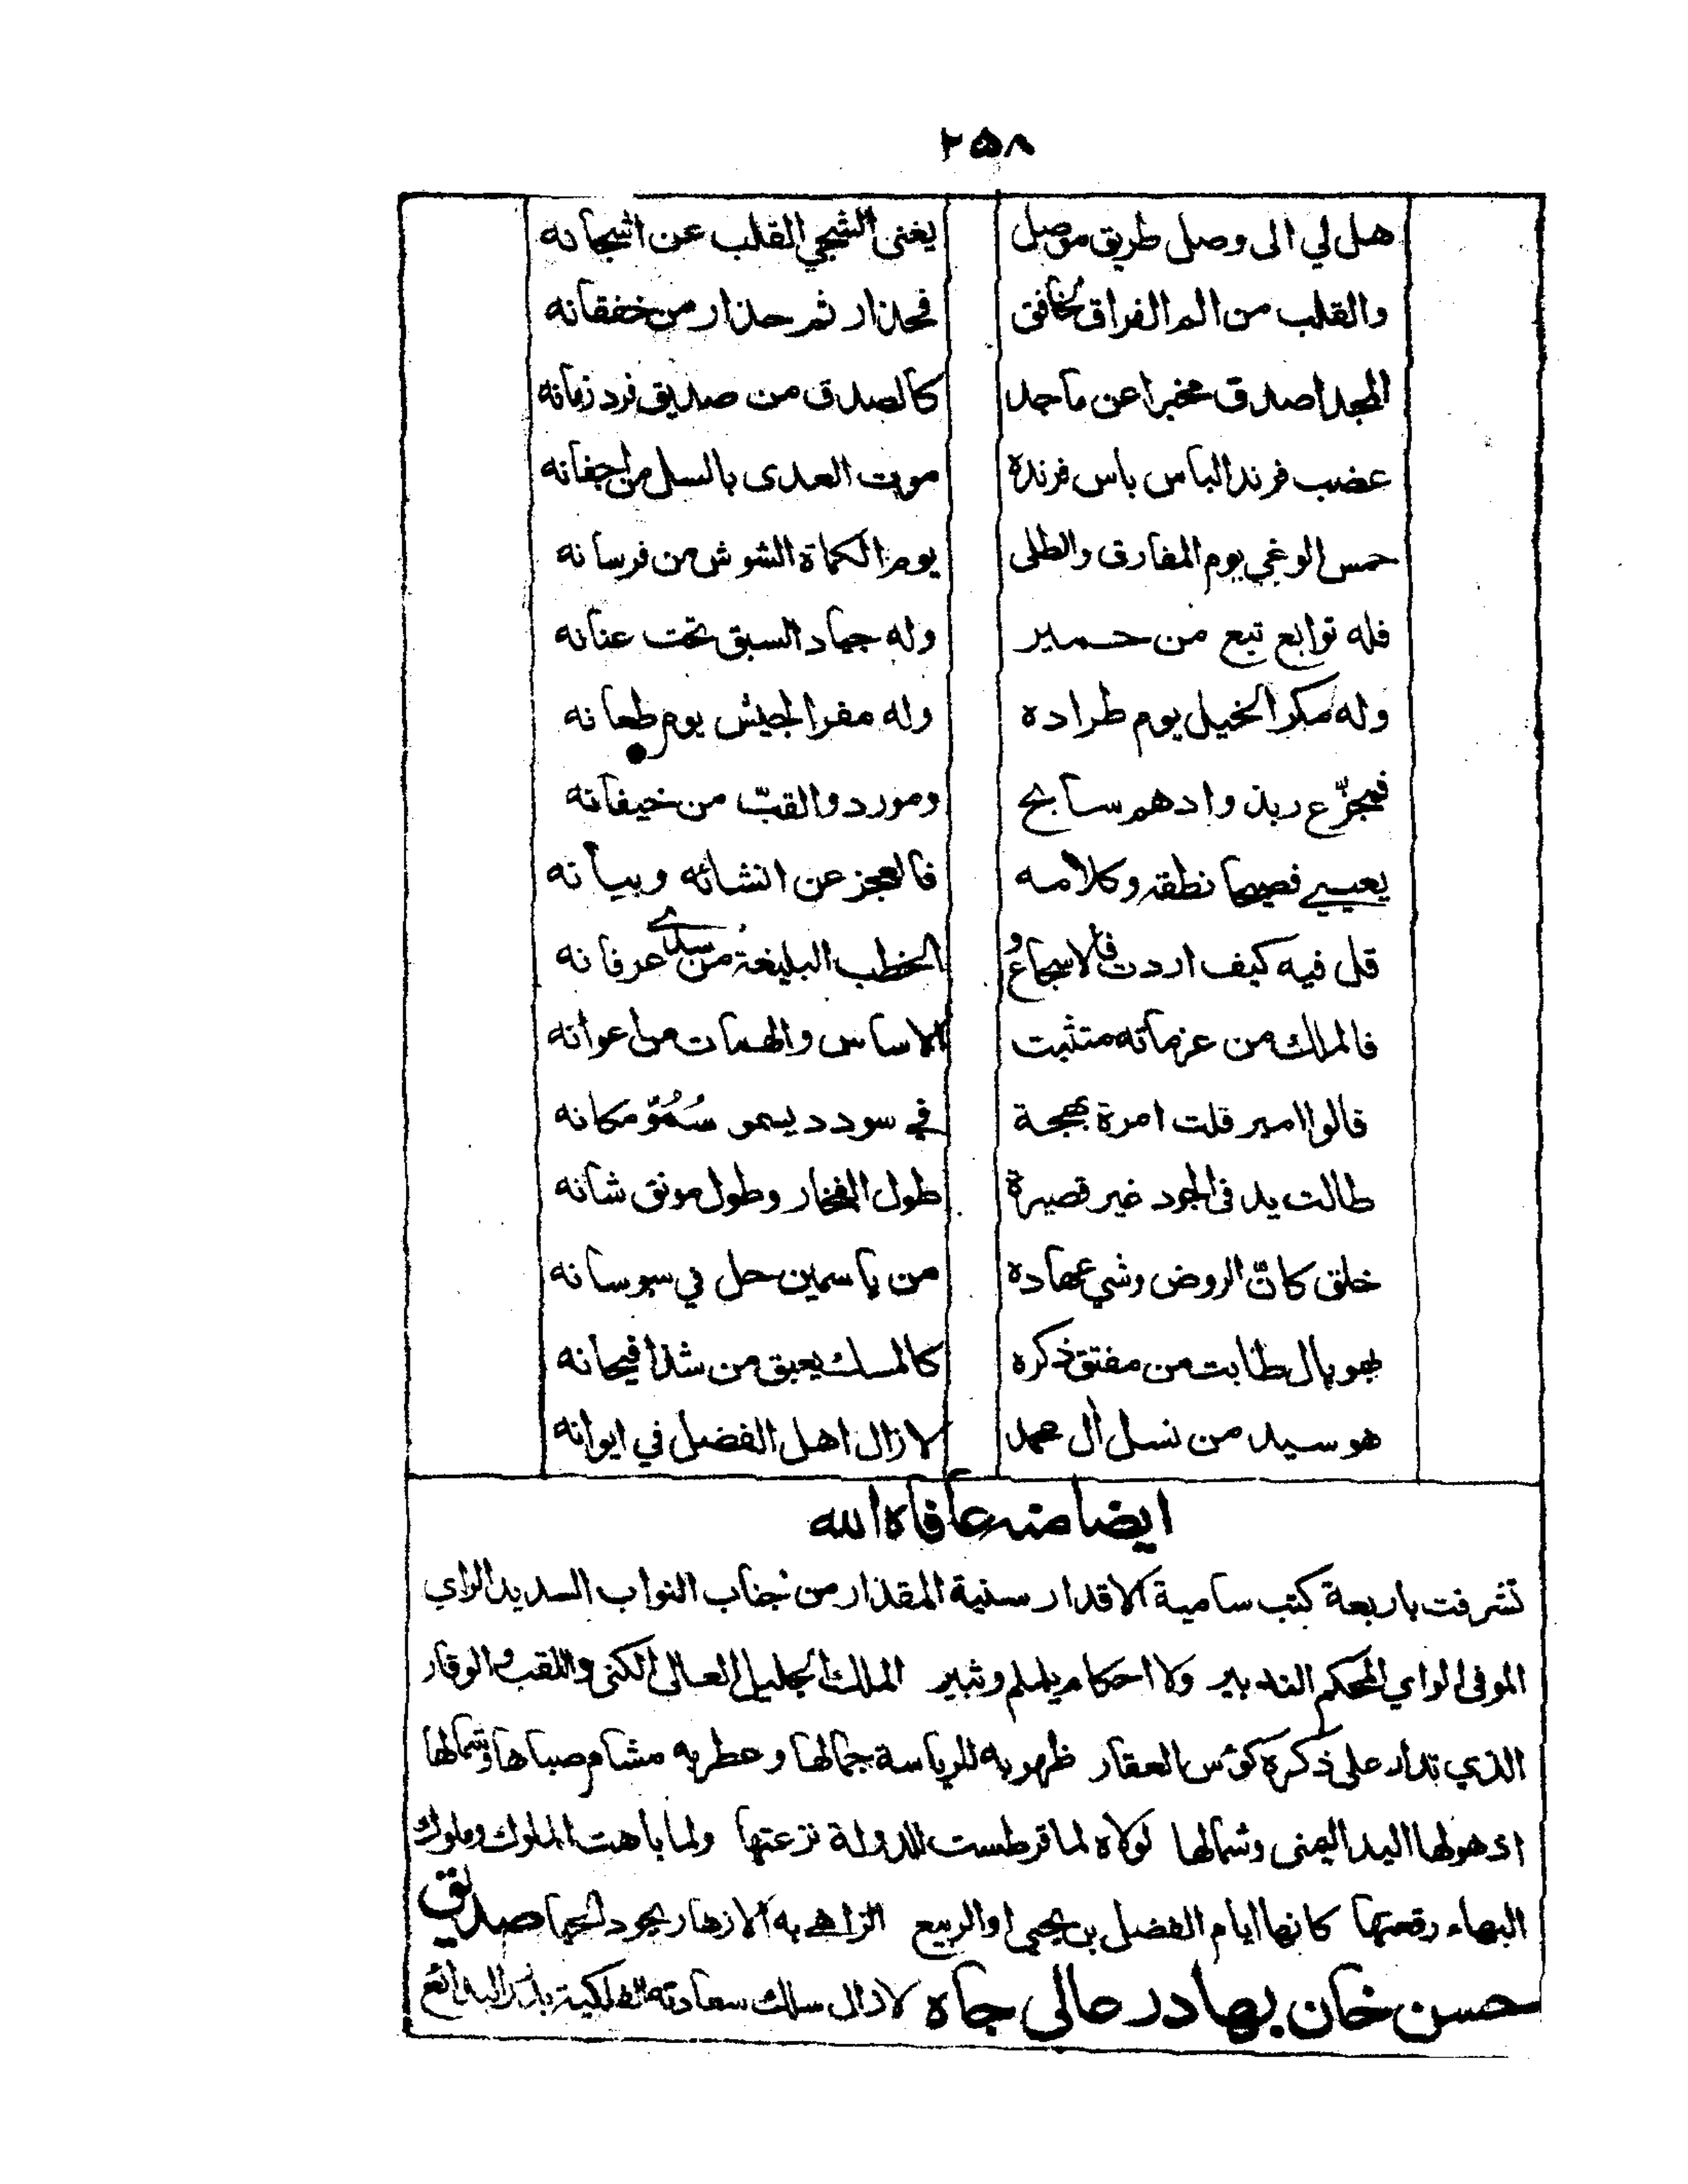 ٢٥٨
هل لي الى وصل طريق موصل يغنى الشجي القلب عن اشجانه
والقلب من الم الفراق كخافق فحذار ثم حذار من خفقانه
المجد اصدق مخبرا عن ماجد كالصدق من صديق فرد زمانه
عضب فرند الباس باس فرنده موت العدى بالسل من اجفانه
حمس الوغى يوم المفارق والطلى يوم الكماة الشوش من فرسانه
فله توابع تبع من حمير وله جياد السبق تحت عنانه
وله مكر الخيل يوم طراده وله مفر الجيش يوم طعانه
فمجزّع ربذ وادهم سابح ومورد والقبّ من خيفانه
يعيي فصيحا نطقه وكلامه فالعجز عن انشائه وبيانه
قل فيه كيف اردت فالاسجاع و الخطب البليغة من سدى عرفانه
فالملك من عزماته متثبت الاساس والهمات من اعوانه
قالوا امير قلت امرة بهجة في سودد يسمو سُمُوّ مكانه
طالت يد فى الجود غير قصيرة طول الفخار وطول مونق شانه
خلق كانّ الروض وشي عهاده من ياسمين حل في سوسانه
بهوپال طابت من مفتق ذكره كالمسك يعبق من شذا فيحانه
هو سيد من نسل آل محمد لازال اهل الفضل في ايوانه
ايضا منه عافاه الله
تشرفت باربعة كتب سامية الاقدار سنية المقدار من جناب النواب السديد الراي
الموفى الواي المحكم التدبير ولا احكام يلملم وثبير الملك الجليل العالى الكنى واللقب والوقار
الذي تدار على ذكره كؤس العقار ظهر به للرياسة جمالها وعطر به مشام صباها وشمالها
اذ هو لها اليد اليمنى وشمالها لولاه لما قرطست للدولة نزعتها ولما باهت الملوك وملوك
البهاء رقعتها كانها ايام الفضل بن يحيى او الربيع الزاهي به الازهار بجود الحيا صديق
حسن خان بهادر عالى جاه لازال سلك سعادته الفلكية بدر البدائع